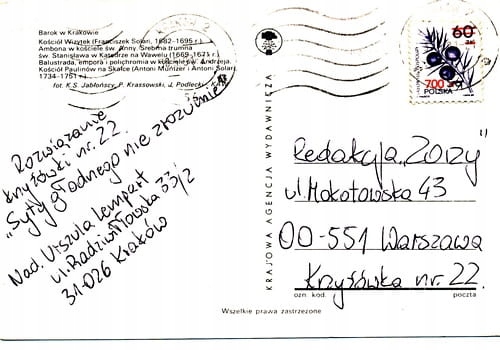 Barok w Krakowie
Kościół Wizytek (Franciszek Solari, 1682-1695 r.)
Ambona w kościele św. Anny. Srebrna trumna
św. Stanisława w Katedrze na Wawelu (1669-1671 r.)
Balustrada, empora i polichromia w kościele św. Andrzeja.
Kościół Paulinów na Skałce (Antoni Müntzer i Antoni Solari
1734-1751 r.)
fot. K.S. Jabłońscy, P. Krassowski, J. Podlecki,
Rozwiązanie
krzyżówki nr. 22.
"Syty głodnego nie zrozumie"
Nad. Urszula Lempart
ul. Radziwiłłowska 33/2
31-026 Kraków
KRAJOWA AGENCJA WYDAWNICZA
60
zł
700 zł
POLSKA
Redakcja "Zorzy"
ul. Mokotowska 43
00-551 Warszawa
Krzyżówka nr. 22.
ozn. kod. poczta
Wszelkie prawa zastrzeżone